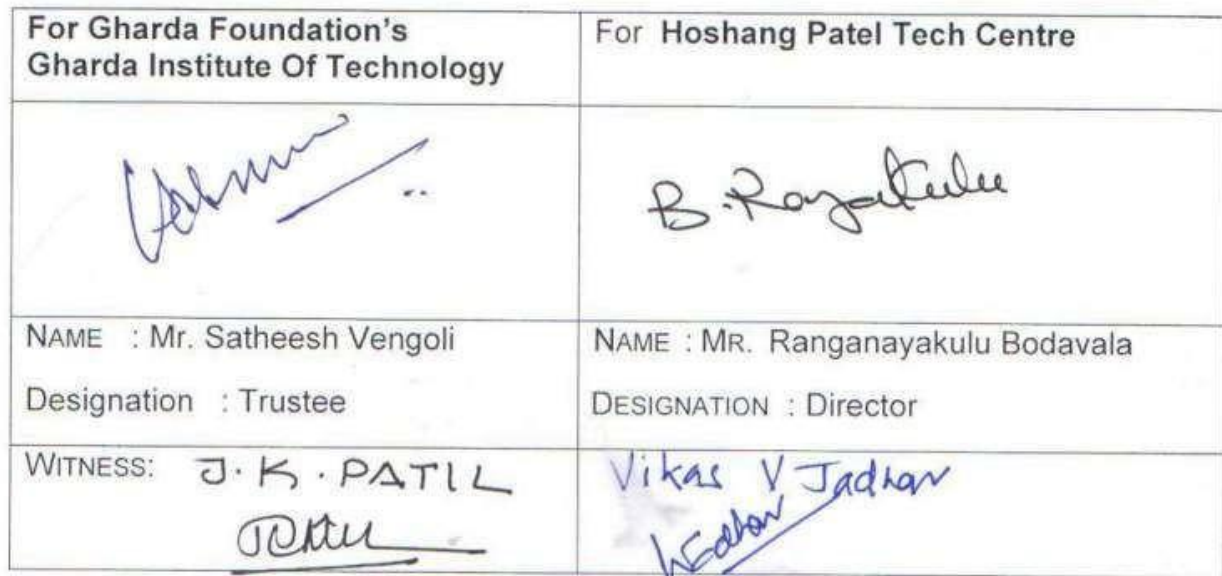 For Gharda Foundation's
Gharda Institute Of Technology
For Hoshang Patel Tech Centre
B. Rayakulu
NAME : Mr. Satheesh Vengoli
Designation : Trustee
NAME : MR. Ranganayakulu Bodavala
DESIGNATION : Director
WITNESS: J. K. PATIL
Vikas V Jadhav